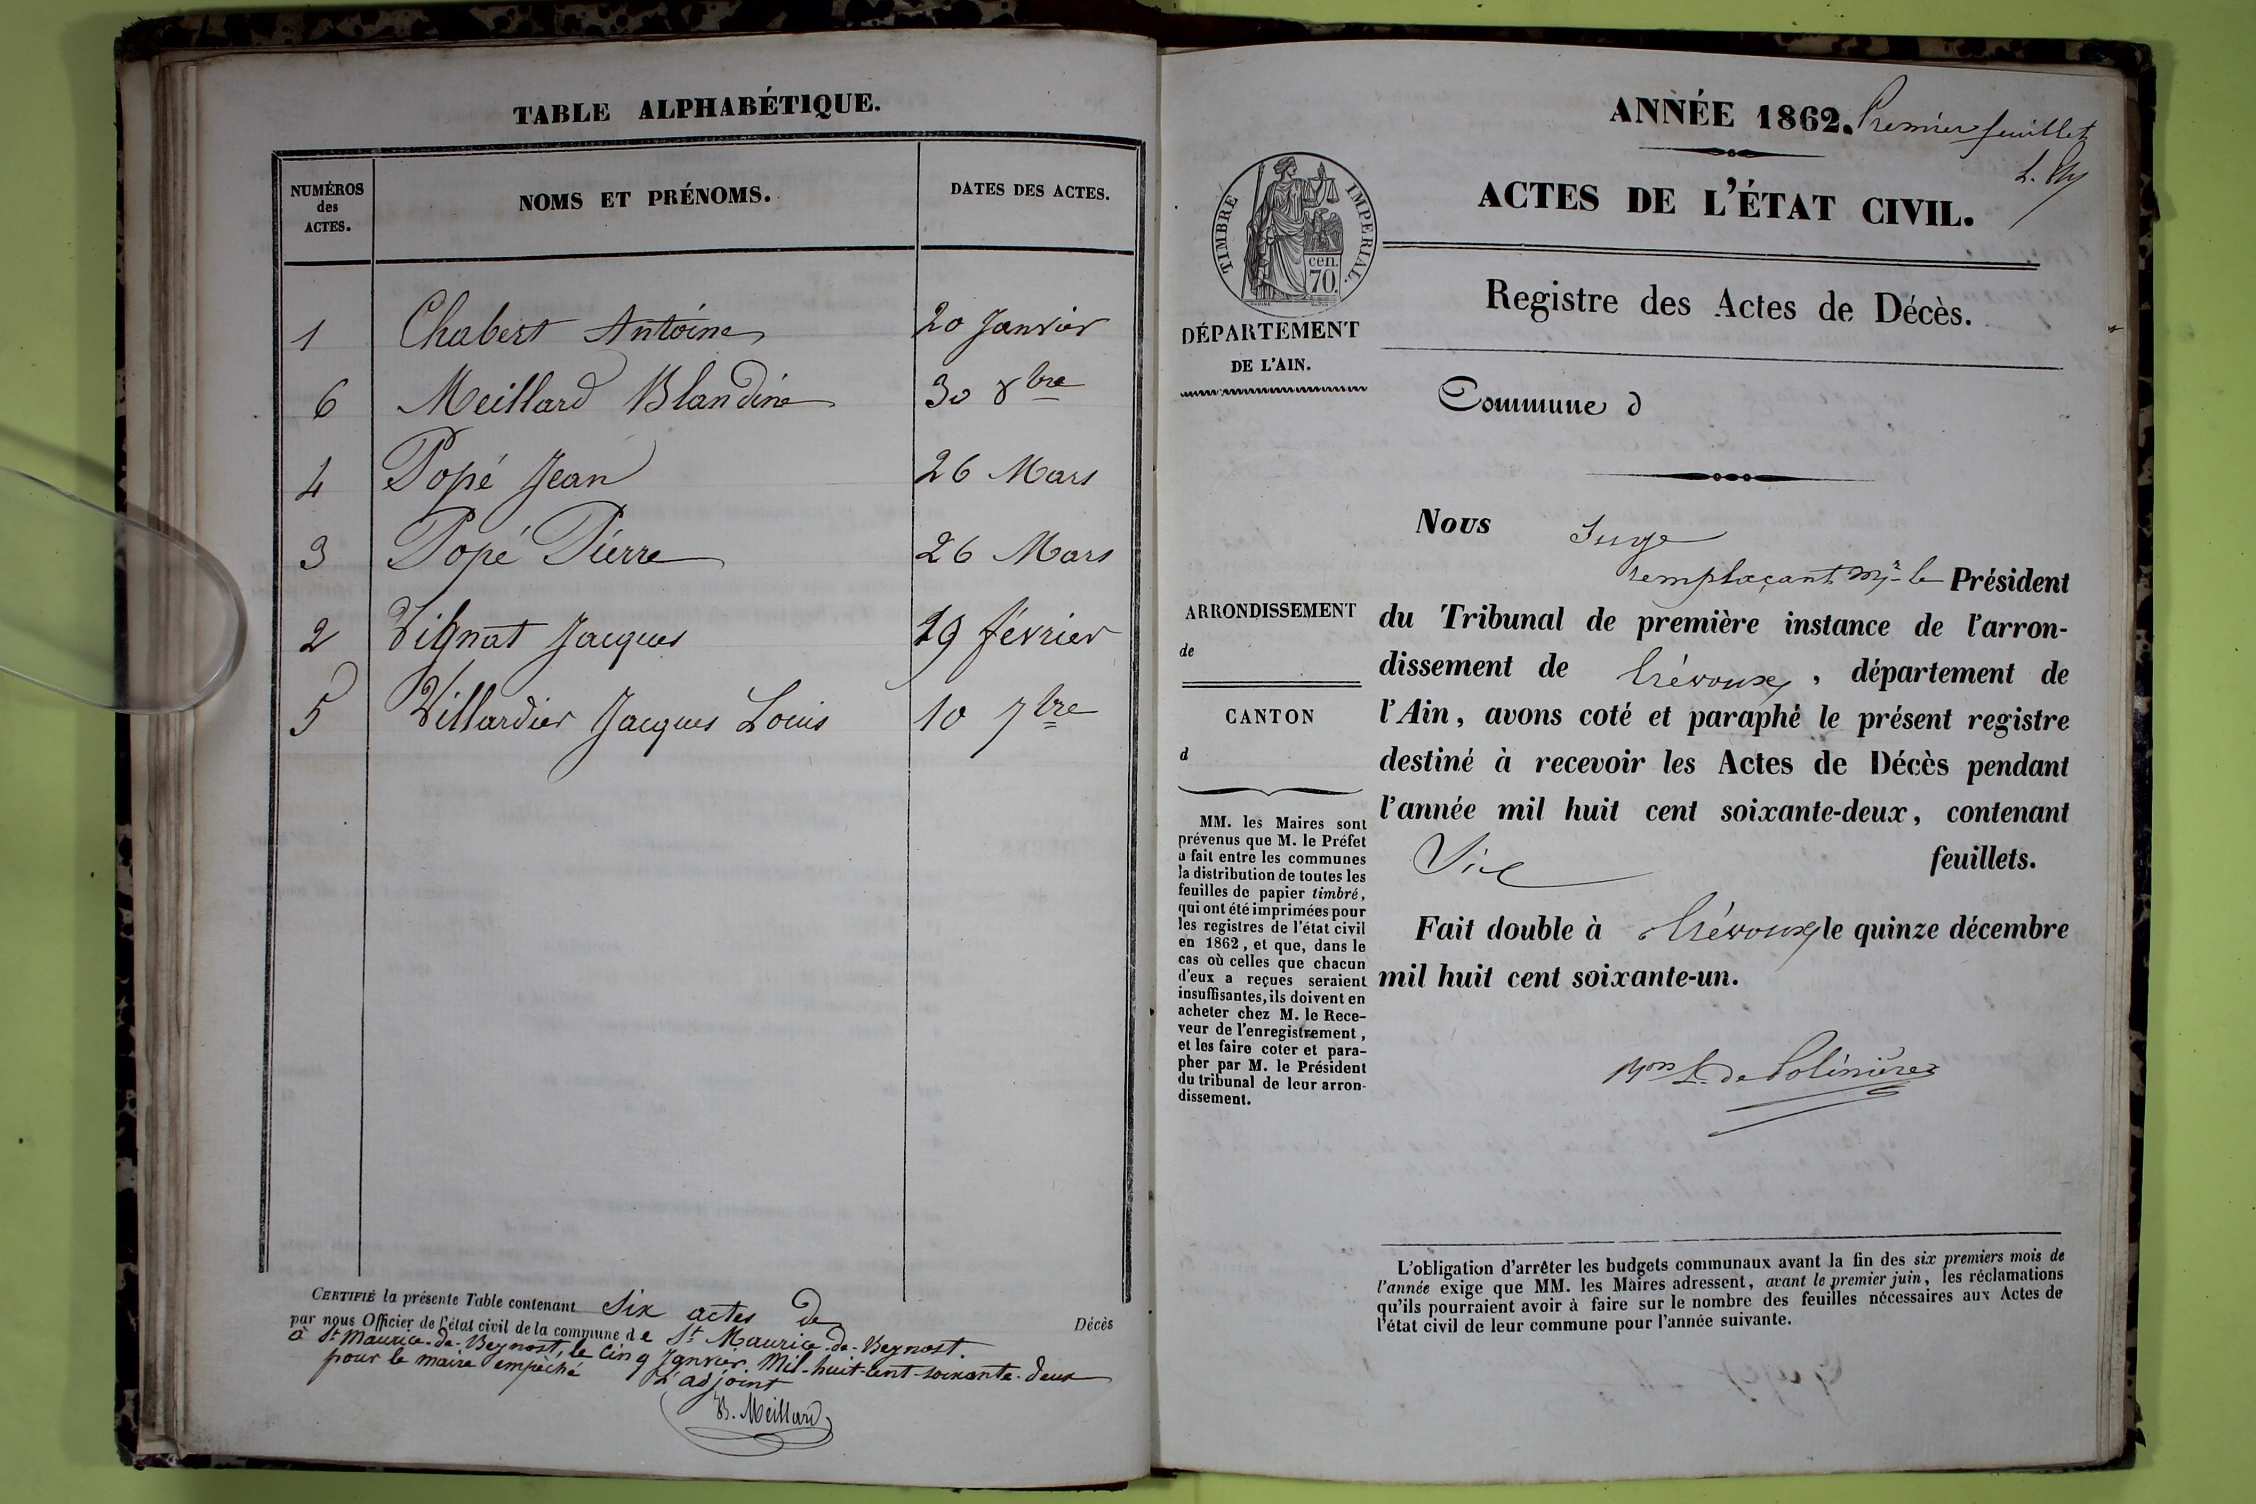 TABLE ALPHABÉTIQUE.
NUMÉROS des ACTES.
NOMS ET PRÉNOMS.
DATES DES ACTES.
1 Chabert Antoine 20 Janvier
6 Meillard Blandine 30 8bre
4 Popé Jean 26 Mars
3 Popé Pierre 26 Mars
2 Vignat Jacques 19 février
5 Villardier Jacques Louis 10 7bre
CERTIFIÉ la présente Table contenant Six actes de Décès
par nous Officier de l'état civil de la commune de St Maurice-de-Beynost.
à St Maurice-de-Beynost, le cinq Janvier Mil-huit-cent-soixante-deux
pour le maire empêché L'adjoint
B. Meillard
ANNÉE 1862. Premier feuillet
ACTES DE L'ÉTAT CIVIL.
TIMBRE IMPERIAL.
cen.
70.
Registre des Actes de Décès.
DÉPARTEMENT
DE L'AIN.
Commune d
Nous Juge
remplaçant Mr le Président
du Tribunal de première instance de l'arron-
dissement de Trévoux, département de
l'Ain, avons coté et paraphé le présent registre
destiné à recevoir les Actes de Décès pendant
l'année mil huit cent soixante-deux, contenant
Six feuillets.
Fait double à Trévoux le quinze décembre
mil huit cent soixante-un.
de Polinière
ARRONDISSEMENT
de
CANTON
d
MM. les Maires sont
prévenus que M. le Préfet
a fait entre les communes
la distribution de toutes les
feuilles de papier timbré,
qui ont été imprimées pour
les registres de l'état civil
en 1862, et que, dans le
cas où celles que chacun
d'eux a reçues seraient
insuffisantes, ils doivent en
acheter chez M. le Rece-
veur de l'enregistrement,
et les faire coter et para-
pher par M. le Président
du tribunal de leur arron-
dissement.
L'obligation d'arrêter les budgets communaux avant la fin des six premiers mois de
l'année exige que MM. les Maires adressent, avant le premier juin, les réclamations
qu'ils pourraient avoir à faire sur le nombre des feuilles nécessaires aux Actes de
l'état civil de leur commune pour l'année suivante.